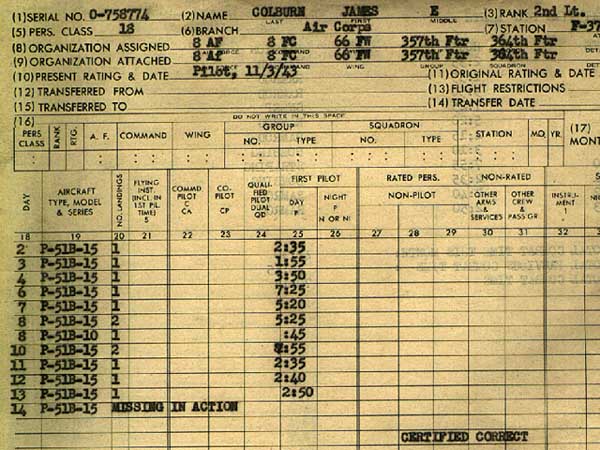 (1)SERIAL NO. O-758774 (2)NAME COLBURN JAMES E (3) RANK 2nd Lt.
LAST FIRST MIDDLE
(5) PERS. CLASS 18 (6)BRANCH Air Corps (7) STATION F-37
(8) ORGANIZATION ASSIGNED 8 AF 8 FC 66 FW 357th Ftr 364th Ftr
(9) ORGANIZATION ATTACHED 8 Af 8 FC 66 FW 357th Ftr 364th Ftr
(10)PRESENT RATING & DATE Pilot, 11/3/43 WING GROUP SQUADRON (11)ORIGINAL RATING & DATE
(12) TRANSFERRED FROM (13)FLIGHT RESTRICTIONS
(15) TRANSFERRED TO (14) TRANSFER DATE
(16) DO NOT WRITE IN THIS SPACE
PERS CLASS RANK RTG. A. F. COMMAND WING GROUP NO. TYPE SQUADRON NO. TYPE STATION MO. YR. (17) MONT
DAY AIRCRAFT TYPE, MODEL & SERIES NO. LANDINGS FLYING INST. (INCL. IN 1ST PIL. TIME) S COMMD PILOT C CA CO-PILOT CP QUALIFIED PILOT DUAL QD FIRST PILOT DAY P NIGHT P N OR NI RATED PERS. NON-PILOT NON-RATED OTHER ARMS & SERVICES OTHER CREW & PASS'GR INSTRUMENT I
18 19 20 21 22 23 24 25 26 27 28 29 30 31 32
2 P-51B-15 1 2:35
3 P-51B-15 1 1:55
4 P-51B-15 1 3:50
6 P-51B-15 1 7:25
7 P-51B-15 1 5:20
8 P-51B-15 2 5:25
8 P-51B-10 1 :45
10 P-51B-15 2 :55
11 P-51B-15 1 2:35
12 P-51B-15 1 2:40
13 P-51B-15 1 2:50
14 P-51B-15 MISSING IN ACTION
CERTIFIED CORRECT